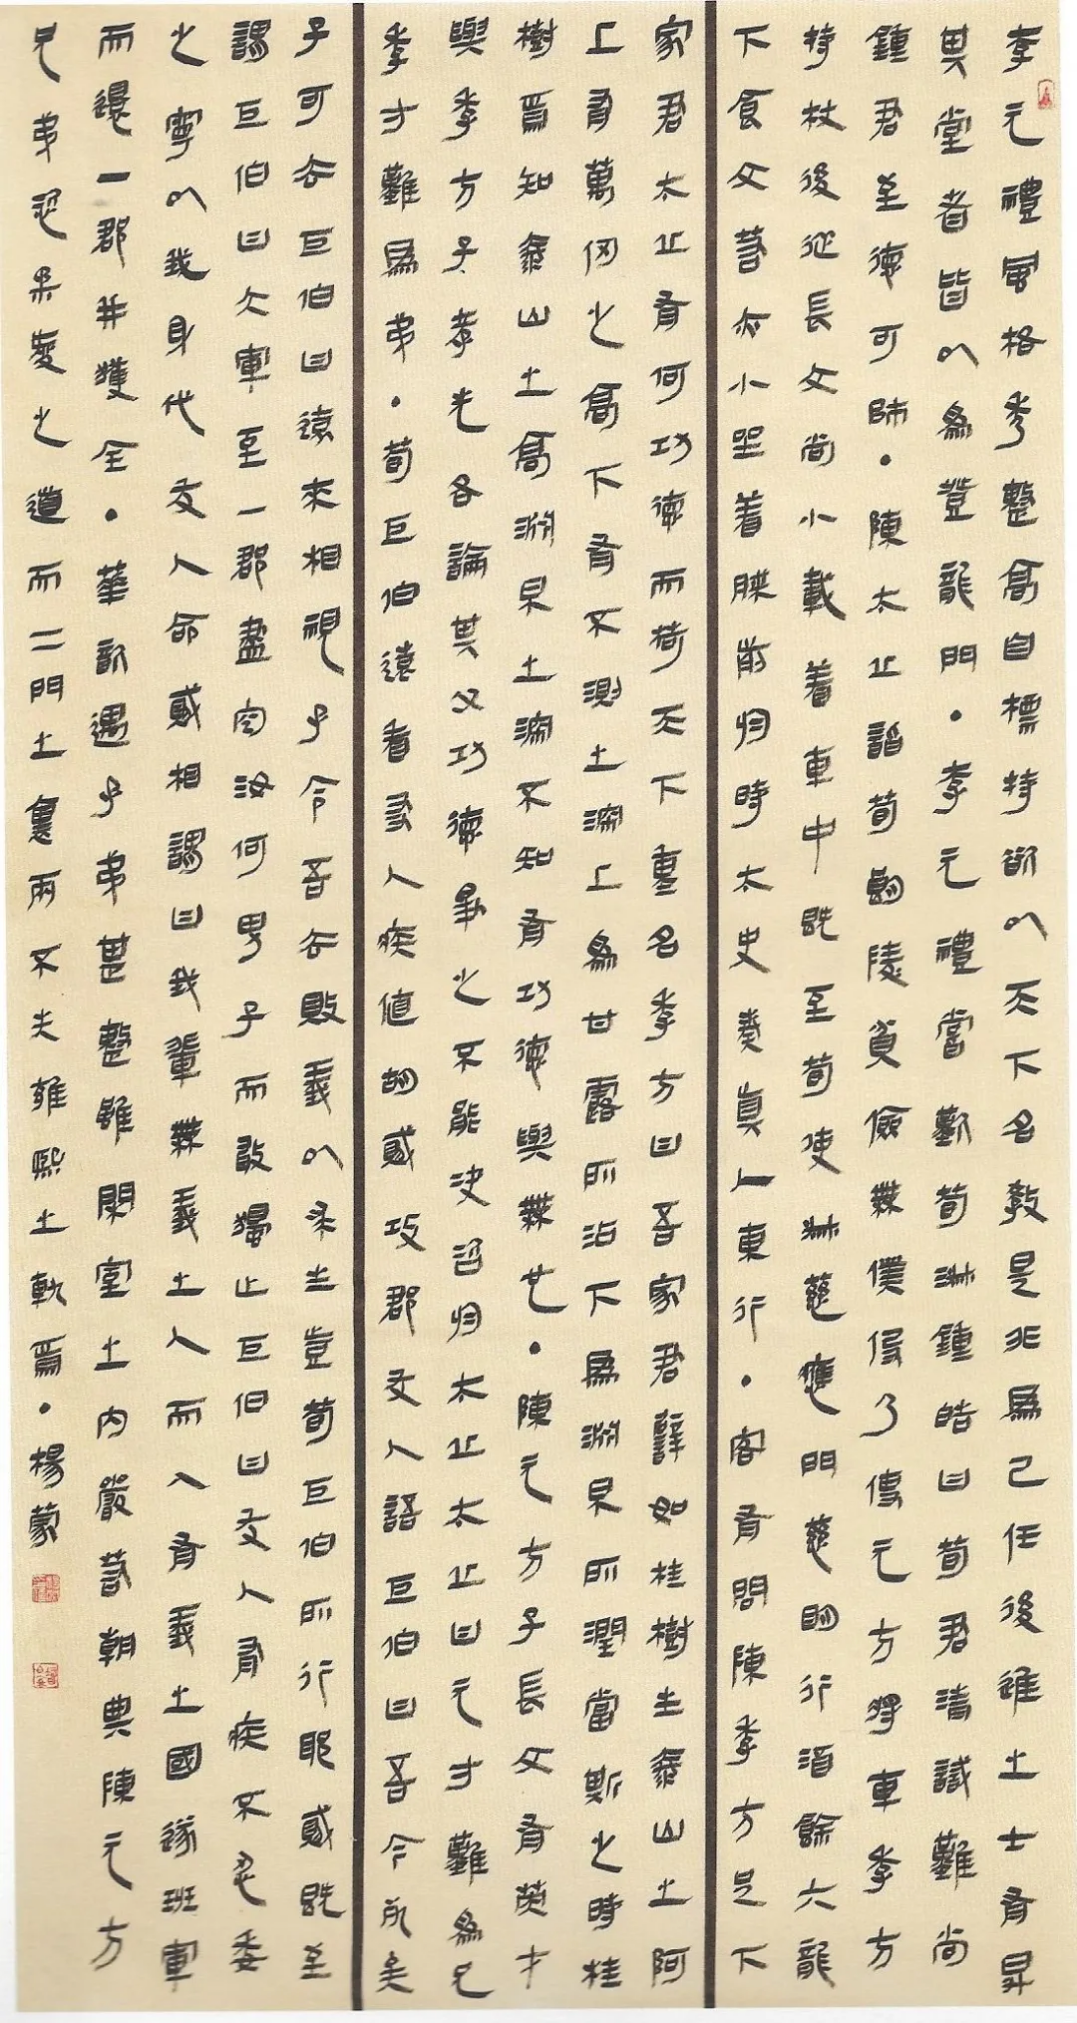 李元禮風格秀整高自標持欲以天下名教是非爲己任後進之士有昇
其堂者皆以爲登龍門·李元禮嘗歎荀淑鍾皓曰荀君清識難尚
鍾君至德可師·陳太丘詣荀朗陵貧儉無僕役乃使元方將車季方
持杖後從長文尚小載着車中既至荀使淑慈應門慈明行酒餘六龍
下食文若亦小坐着膝前於時太史奏真人東行·客有問陳季方足下
家君太丘有何功德而荷天下重名季方曰吾家君譬如桂樹生泰山之阿
上有萬仞之高下有不測之深上爲甘露所沾下爲淵泉所潤當斯之時桂
樹焉知泰山之高淵泉之深不知有功德與無也·陳元方子長文有英才
與季方子孝先各論其父功德爭之不能決咨於太丘太丘曰元方難爲兄
季方難爲弟·荀巨伯遠看友人疾值胡賊攻郡友人語巨伯曰吾今死矣
子可去巨伯曰遠來相視子令吾去敗義以求生豈荀巨伯所行耶賊既至
謂巨伯曰大軍至一郡盡空汝何男子而敢獨止巨伯曰友人有疾不忍委
之寧以我身代友人命賊相謂曰我輩無義之人而入有義之國遂班軍
而還一郡并獲全·華歆遇子弟甚整雖閑室之内嚴若朝典陳元方
兄弟恣柔愛之道而二門之裏兩不失雍熙之軌焉·楊蒙